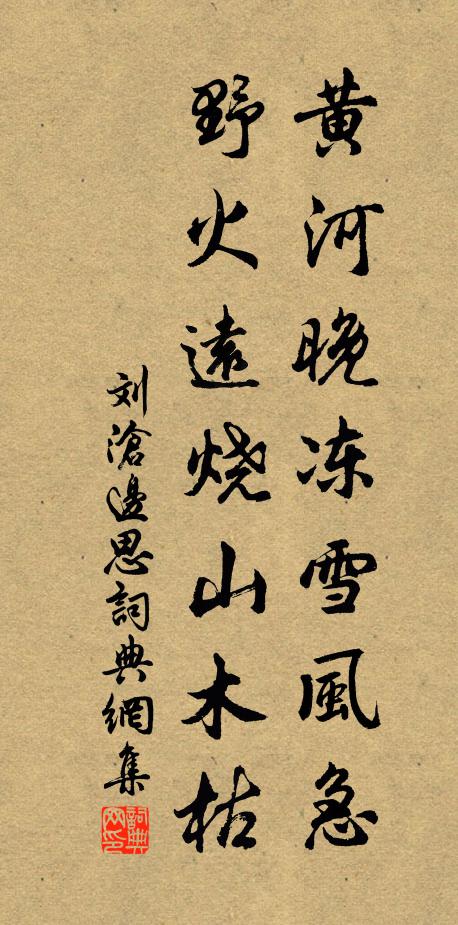 黄河晚冻雪風急
野火遠烧山木枯
刘滄邊思詞典網集
詞典網印